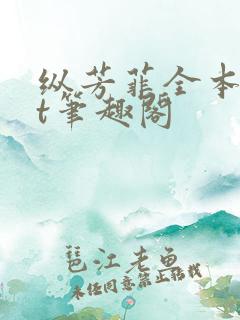 纵芳菲全本
t笔趣阁
琶江老鱼
未经同意禁止转载